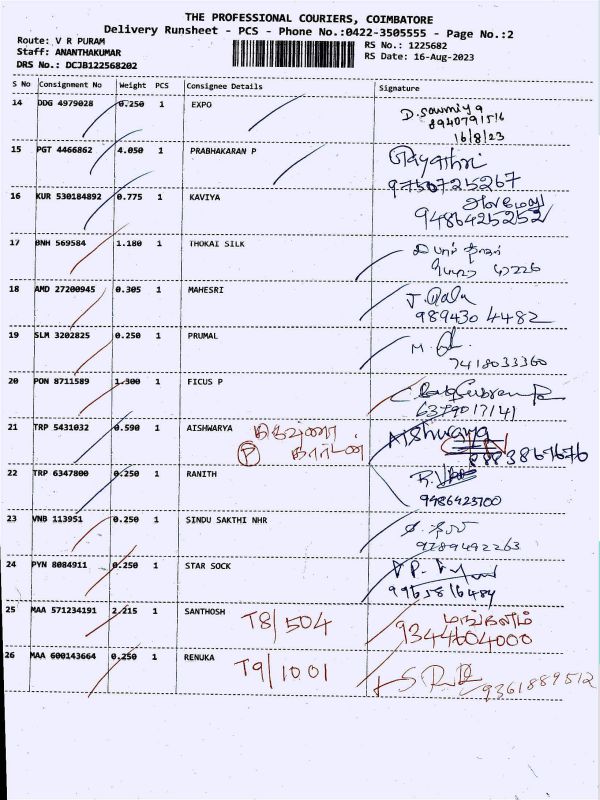 THE PROFESSIONAL COURIERS, COIMBATORE
Delivery Runsheet - PCS - Phone No.:0422-3505555 - Page No.:2
Route: V R PURAM RS No.: 1225682
Staff: ANANTHAKUMAR RS Date: 16-Aug-2023
DRS No.: DCJB122568202
S No Consignment No Weight PCS Consignee Details Signature
14 DDG 4979028 0.250 1 EXPO D. Sowmiya
8940791516
16/8/23
15 PGT 4466862 4.050 1 PRABHAKARAN P Gayathri
9750725267
16 KUR 530184892 0.775 1 KAVIYA
9486425252
17 BNH 569584 1.180 1 THOKAI SILK
18 AMD 27200945 0.305 1 MAHESRI J. Bala
989430 4482
19 SLM 3202825 0.250 1 PRUMAL M.
7418033360
20 PON 8711589 1.300 1 FICUS P
6379017141
21 TRP 5431032 0.590 1 AISHWARYA Aishwarya
P கார்டன் 8883867676
22 TRP 6347800 0.250 1 RANITH
9486425700
23 VNB 113951 0.250 1 SINDU SAKTHI NHR
9789492263
24 PYN 8084911 0.250 1 STAR SOCK
9965816484
25 MAA 571234191 2.215 1 SANTHOSH T8/504
9344604000
26 MAA 600143664 0.250 1 RENUKA T9/1001
9361889512